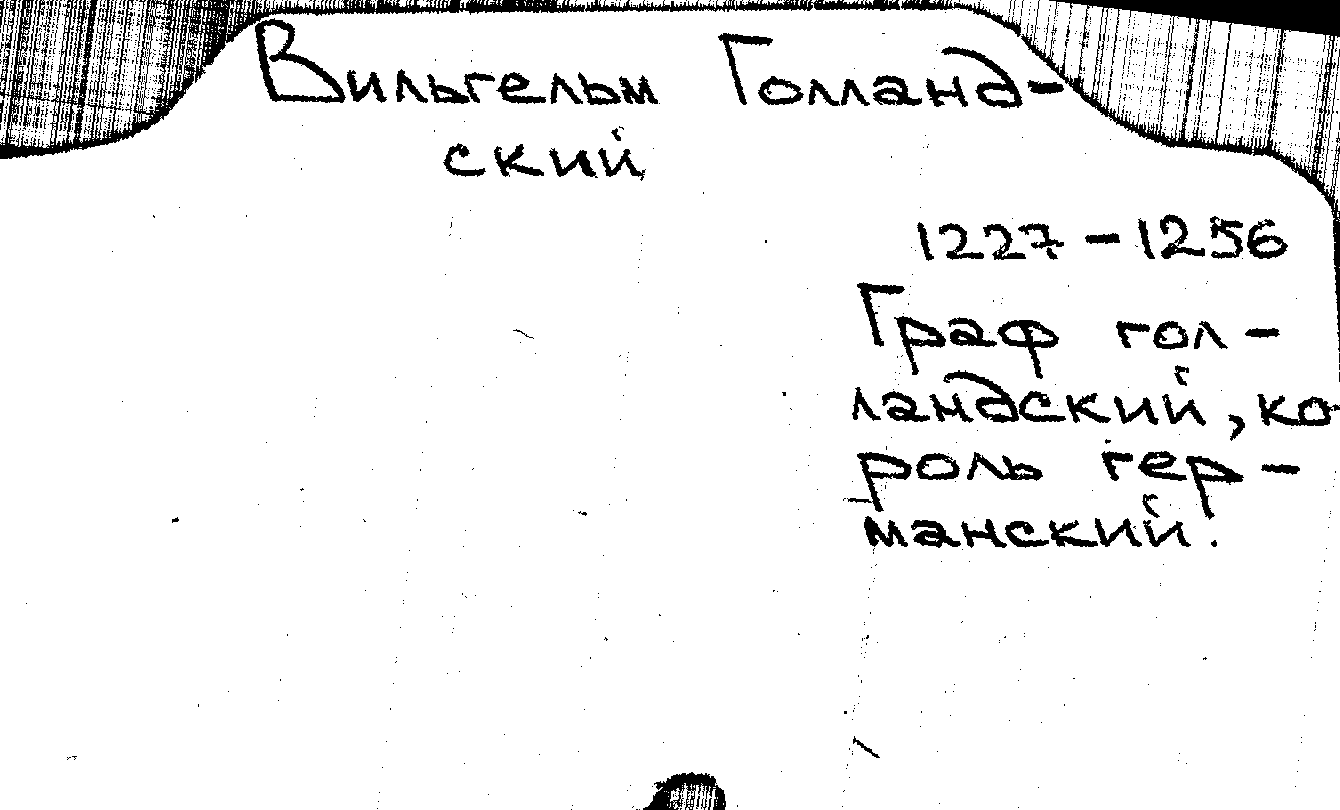 Вильгельм Голланд-
ский
1227-1256
Граф гол-
ландский, ко-
роль гер-
манский.